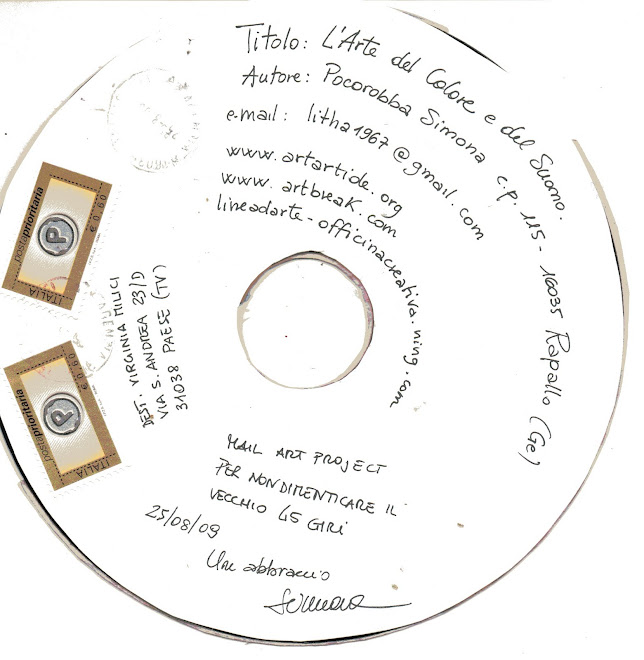 Titolo: L'Arte del Colore e del Suono.
Autore: Pocorobba Simona c.p. 115 - 16035 Rapallo (Ge)
e.mail: litha1967@gmail.com
www.artartide.org
www.artbreak.com
lineadarte-officinacreativa.ning.com
postaprioritaria
€ 0,60
P
ITALIA
postaprioritaria
€ 0,60
P
ITALIA
DEST. VIRGINIA MILICI
VIA S. ANDREA 23/D
31038 PAESE (TV)
MAIL ART PROJECT
PER NON DIMENTICARE IL
VECCHIO 45 GIRI
25/08/09
Un abbraccio
Simona